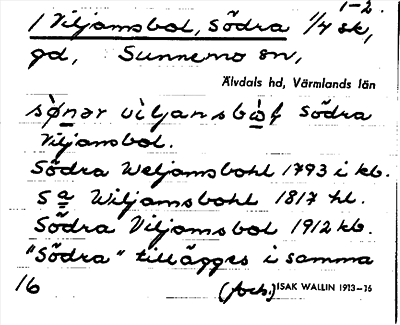 1-2.
1 Viljamsbol, Södra 1/4 sk,
gd, Sunnemo sn,
Älvdals hd, Värmlands län
Södra
Viljamsbol.
Södra Weljamsbohl 1793 i kb.
S a Wiljamsbohl 1817 hl.
Södra Viljamsbol 1912 kb.
"Södra" tillägges i samma
16 ISAK WALLIN 1913-16